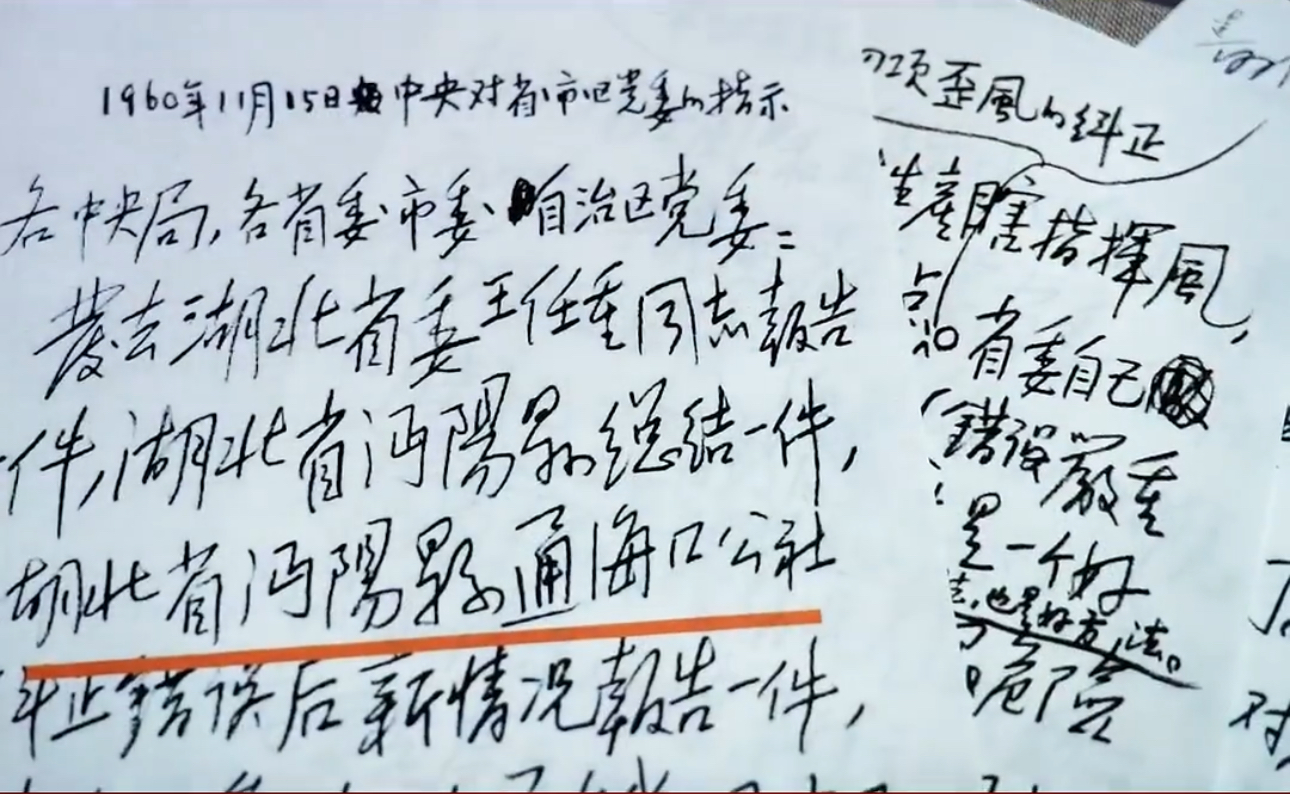 1960年11月15日中央对省市区党委的指示
各中央局,各省委市委自治区党委:
发去湖北省委王任重同志報告
一件,湖北省沔陽县总结一件,
湖北省沔陽县通海口公社
纠正錯误后新情况報告一件,
项歪風的纠正
瞎指揮風,
省委自己
錯误嚴重
是一个好
也是好方法。
危险
对